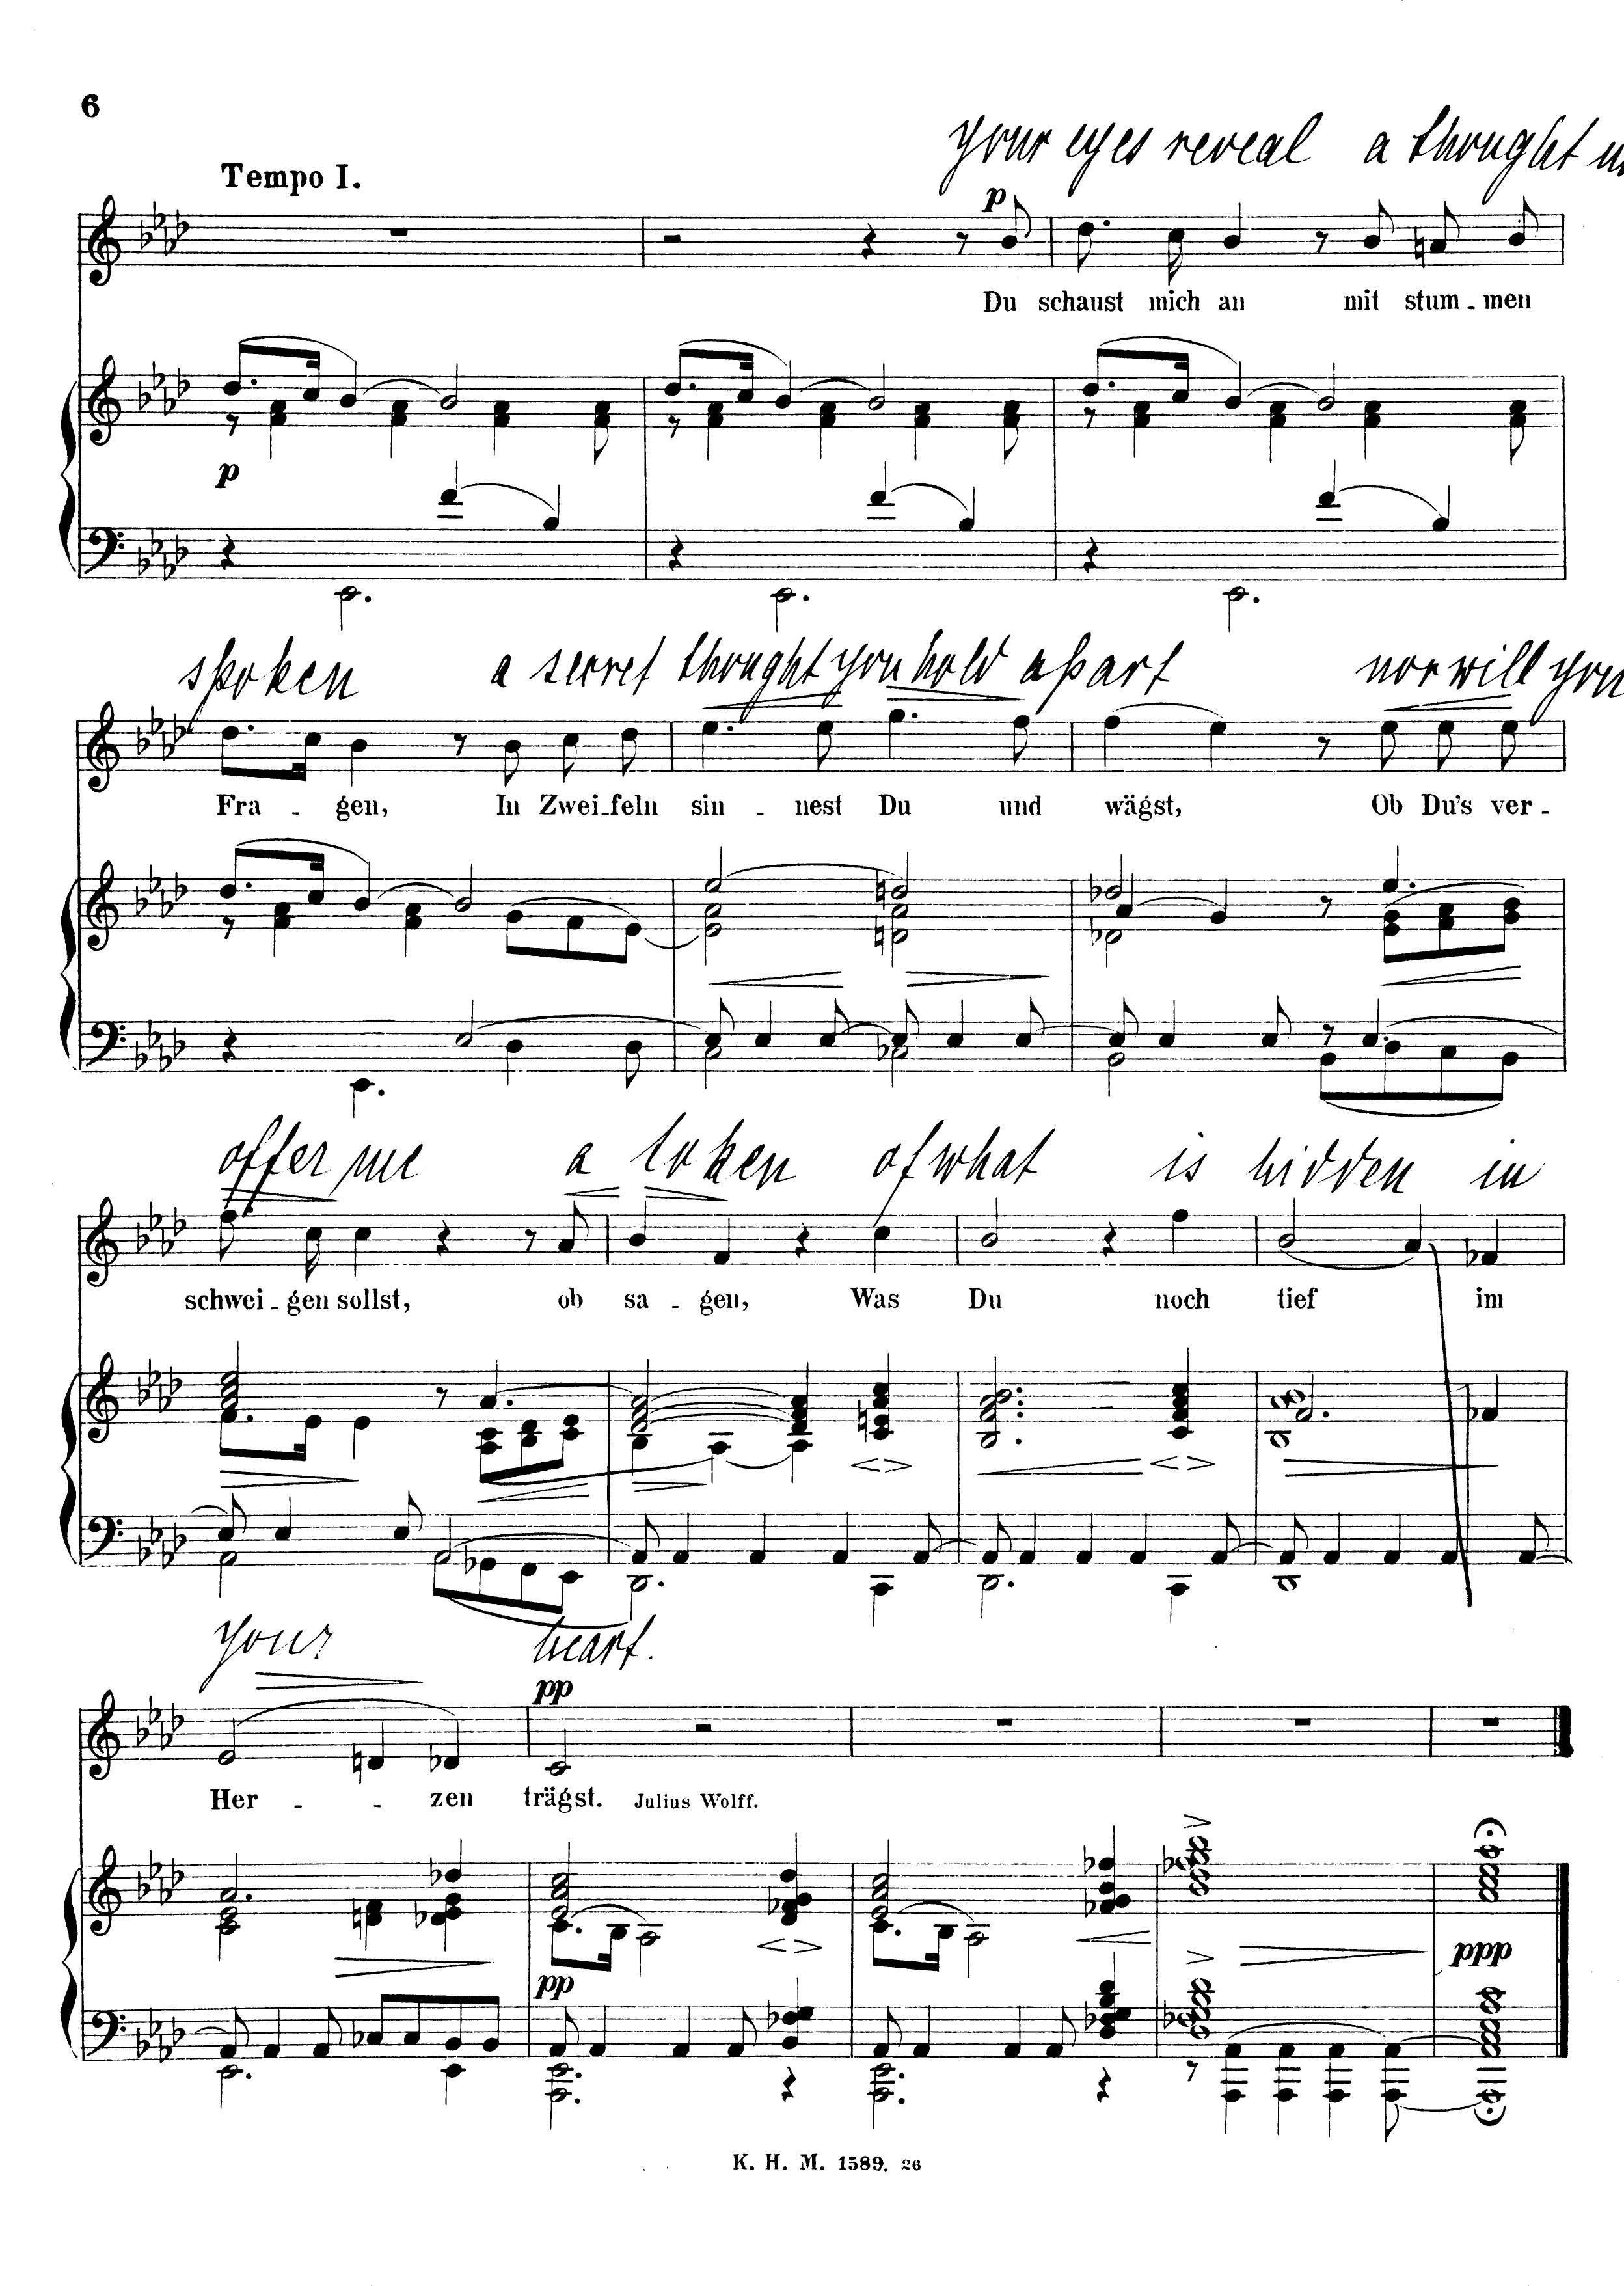 6
your eyes reveal a thought
Tempo I.
p
Du schaust mich an mit stum - men
p
spoken a secret thought you hold apart nor will you
Fra - gen, In Zwei - feln sin - nest Du und wägst, Ob Du's ver -
offer me a token of what is hidden in
schwei - gen sollst, ob sa - gen, Was Du noch tief im
your heart.
pp
Her - - zen trägst. Julius Wolff.
pp
ppp
K. H. M. 1589. 26